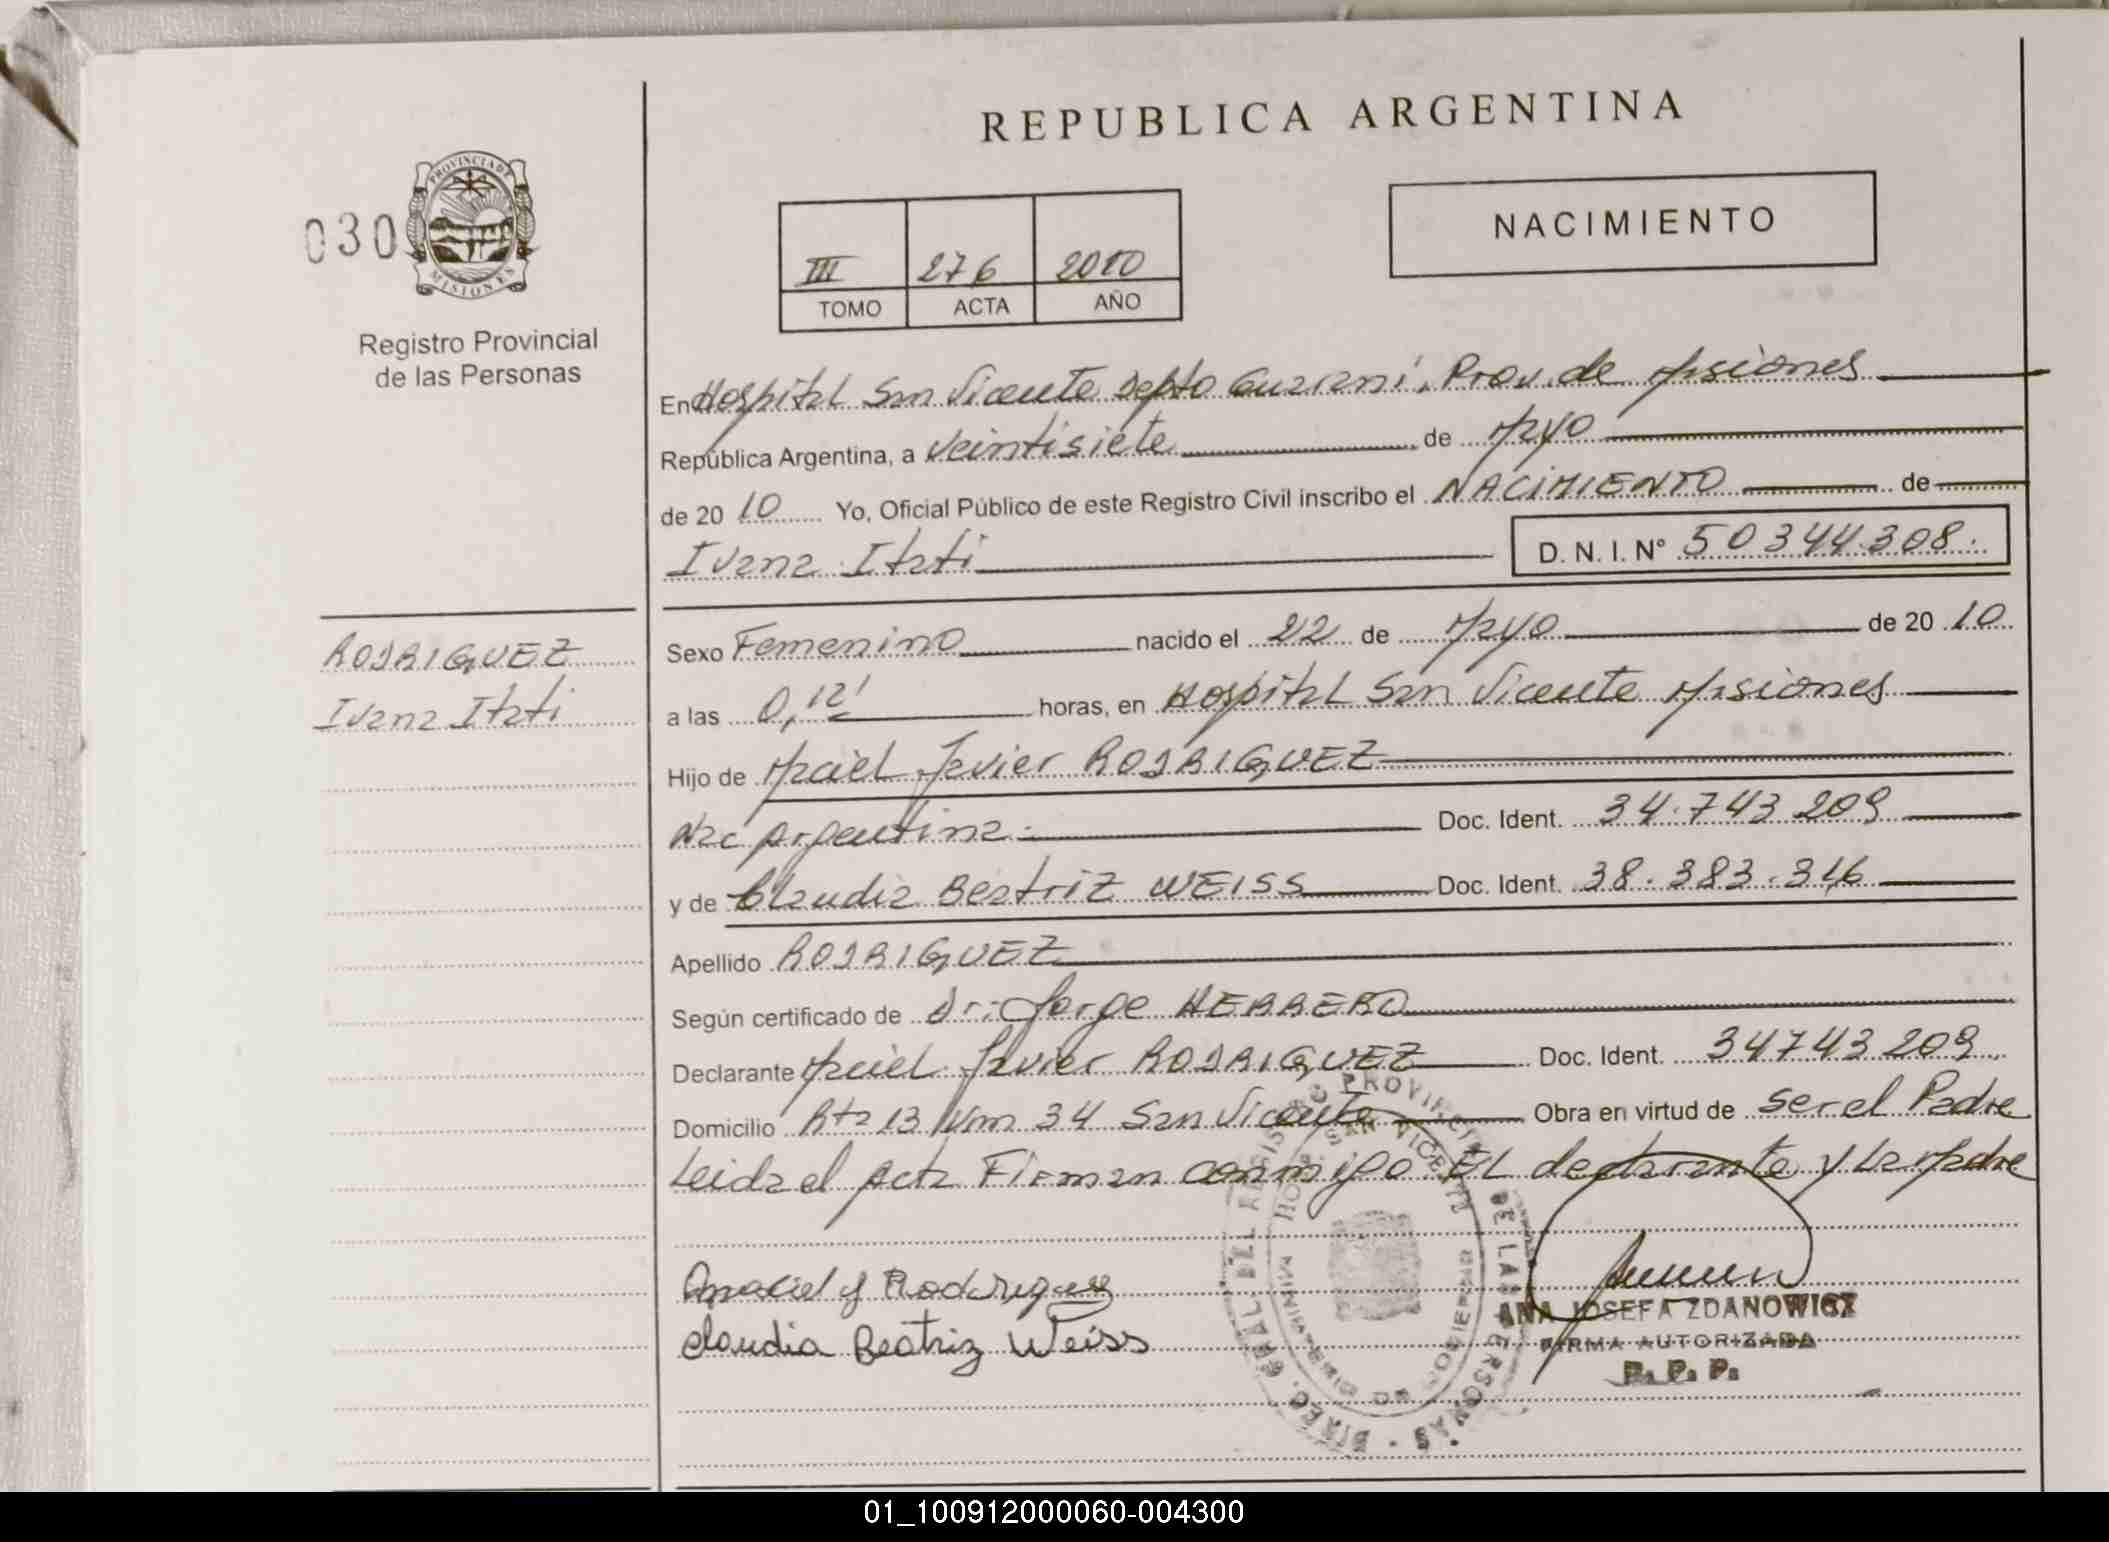 REPUBLICA ARGENTINA
030
PROVINCIA DE
MISIONES
Registro Provincial
de las Personas
III 276 2010
TOMO ACTA AÑO
NACIMIENTO
En Hospital San Vicente Depto Guarani, Prov. de Misiones
República Argentina, a veintisiete de Mayo
de 20 10 Yo, Oficial Público de este Registro Civil inscribo el NACIMIENTO de
Ivana Itati D. N. I. N° 50344.308.
RODRIGUEZ
Ivana Itati
Sexo Femenino nacido el 22 de Mayo de 20 10
a las 0,12' horas, en Hospital San Vicente Misiones
Hijo de Maciel Javier RODRIGUEZ
Nac Argentina.- Doc. Ident. 34.743.209
y de Claudia Beatriz WEISS Doc. Ident. 38.383.316
Apellido RODRIGUEZ
Según certificado de Dr: Jorge HERRERO
Declarante Maciel Javier RODRIGUEZ Doc. Ident. 34743209
Domicilio Rta 13 Km 34 San Vicente Obra en virtud de ser el Padre
Leida el Acta Firman conmigo El declarante y La Madre
Maciel J Rodriguez
Claudia Beatriz Weiss
ANA JOSEFA ZDANOWICZ
FIRMA AUTORIZADA
R. P. P.
01_100912000060-004300